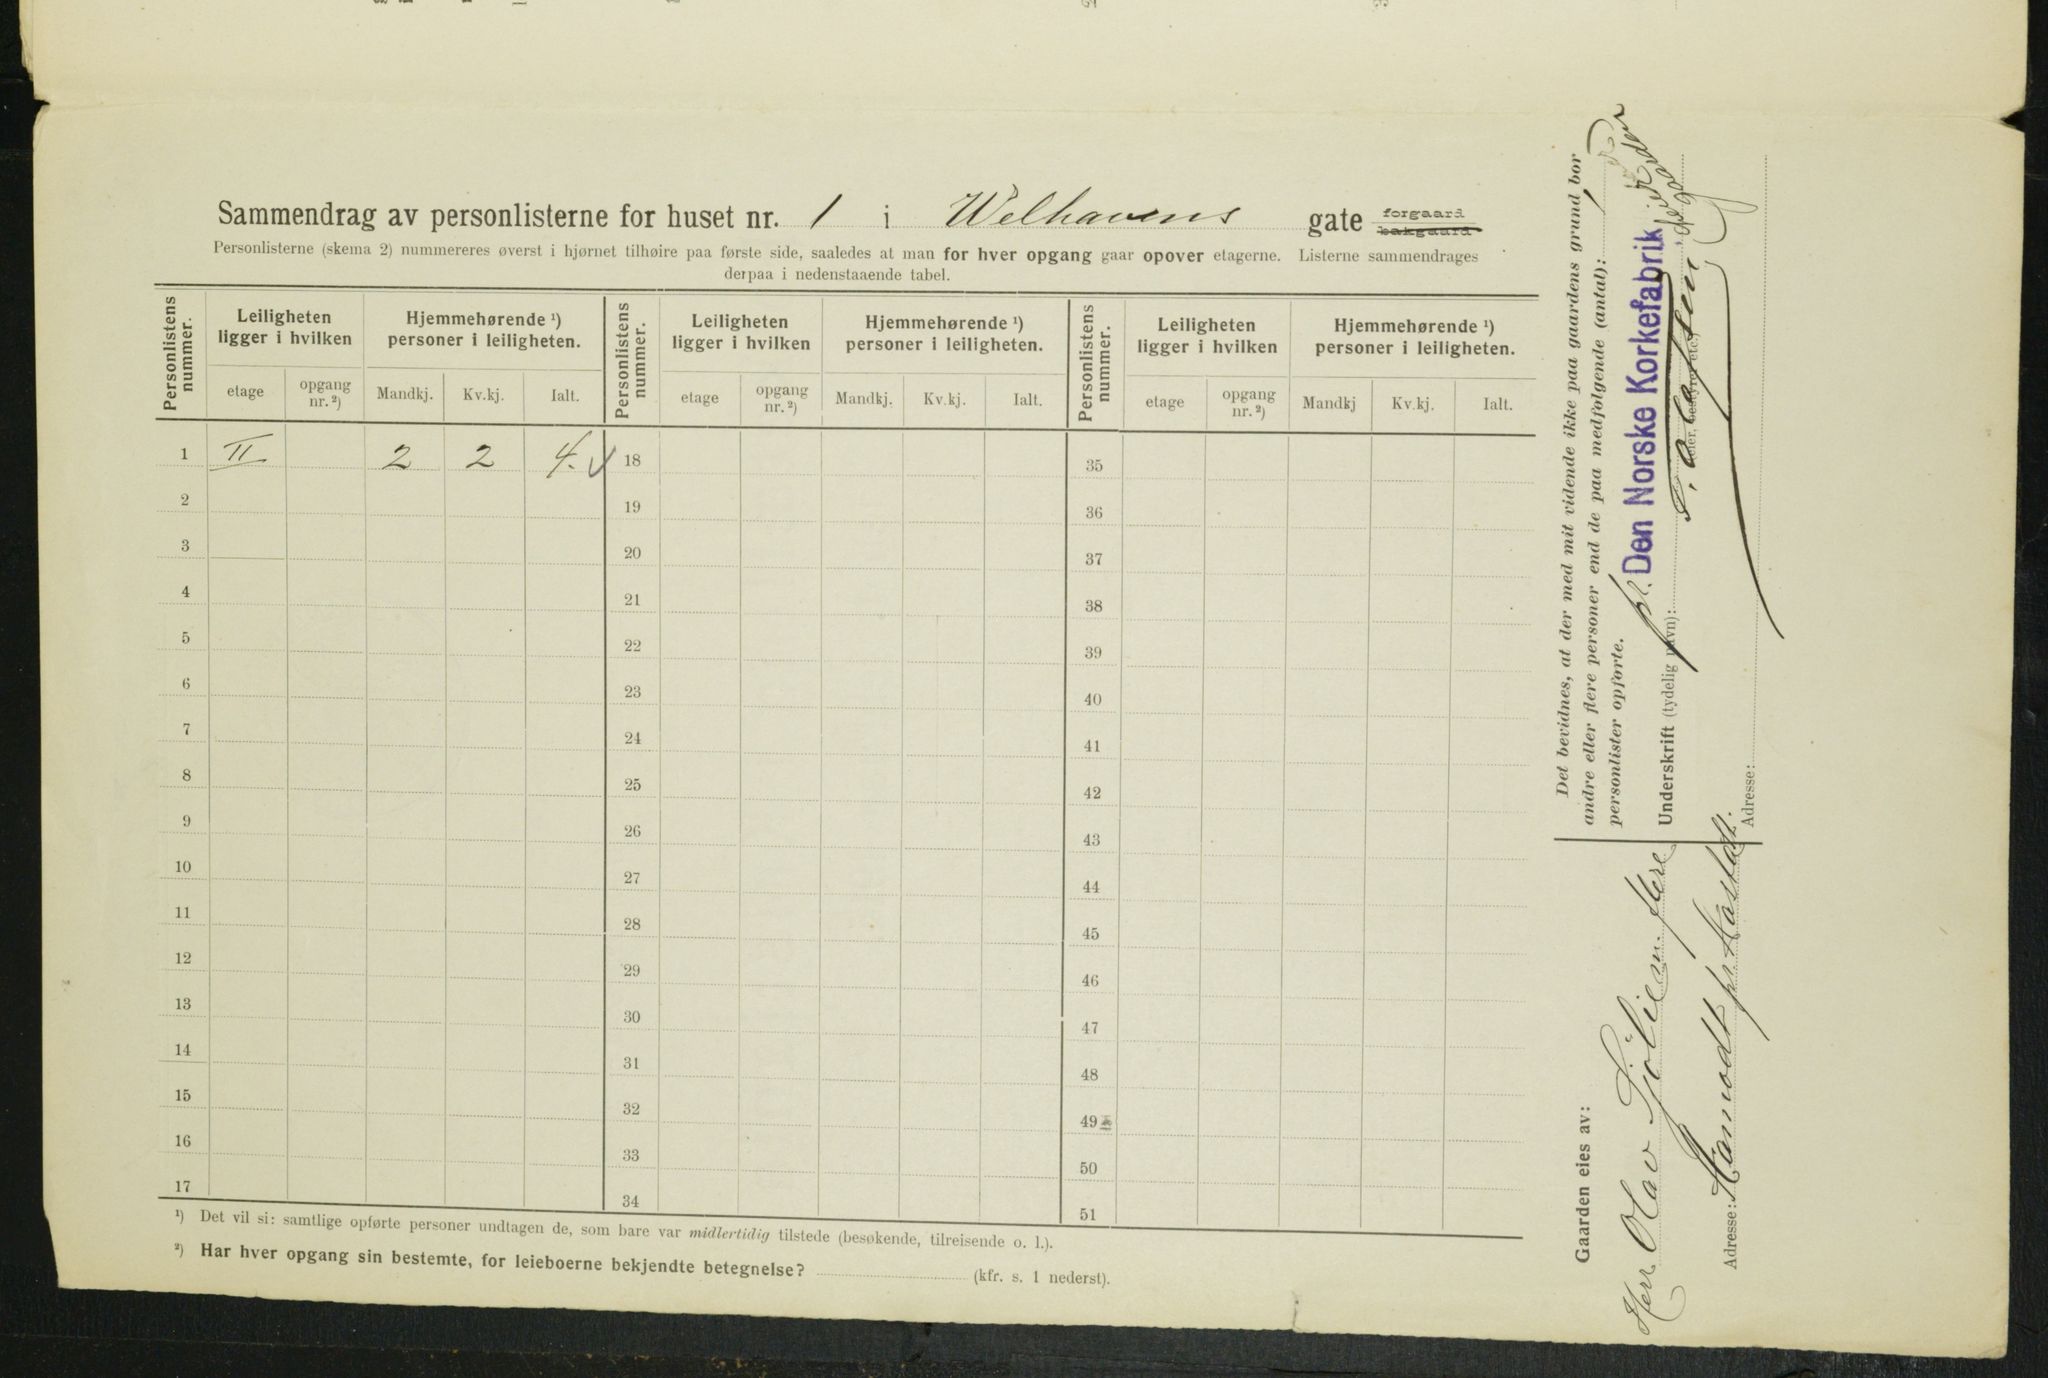 Sammendrag av personlisterne for huset nr. 1 i Welhavens gate forgaard bakgaard
Personlisterne (skema 2) nummereres øverst i hjørnet tilhøire paa første side, saaledes at man for hver opgang gaar opover etagerne. Listerne sammendrages
derpaa i nedenstaaende tabel.
Personlistens nummer. Leiligheten ligger i hvilken Hjemmehørende ¹) personer i leiligheten. Personlistens nummer. Leiligheten ligger i hvilken Hjemmehørende ¹) personer i leiligheten. Personlistens nummer. Leiligheten ligger i hvilken Hjemmehørende ¹) personer i leiligheten.
etage opgang nr. ²) Mandkj. Kv.kj. Ialt. etage opgang nr. ²) Mandkj. Kv.kj. Ialt. etage opgang nr. ²) Mandkj Kv.kj. Ialt.
1 II 2 2 4. 18 35
2 19 36
3 20 37
4 21 38
5 22 39
6 23 40
7 24 41
8 25 42
9 26 43
10 27 44
11 28 45
12 29 46
13 30 47
14 31 48
15 32 49
16 33 50
17 34 51
¹) Det vil si: samtlige opførte personer undtagen de, som bare var midlertidig tilstede (besøkende, tilreisende o. l.).
²) Har hver opgang sin bestemte, for leieboerne bekjendte betegnelse? (kfr. s. 1 nederst).
Det bevidnes, at der med mit vidende ikke paa gaardens grund bor
andre eller flere personer end de paa medfølgende (antal): 1
personlister opførte.
pr. Den Norske Korkefabrik
Underskrift (tydelig navn):
Adresse:
Gaarden eies av:
Herr Olav
Adresse: